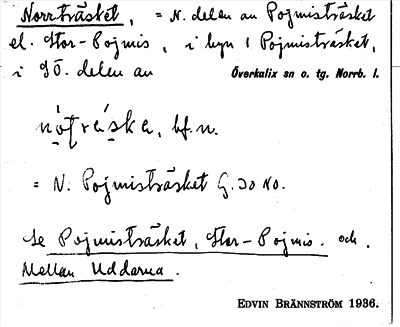 Norrträsket, = N. delen av Pojmisträsket
el. Stor-Pojmis, i byn Pojmisträsket,
i SÖ. delen av Överkalix sn o. tg. Norrb. l.
bf. n.
= N. Pojmisträsket G. 30 NO.
Se Pojmisträsket, Stor-Pojmis. och
Mellan Uddarna.
EDVIN BRÄNNSTRÖM 1936.